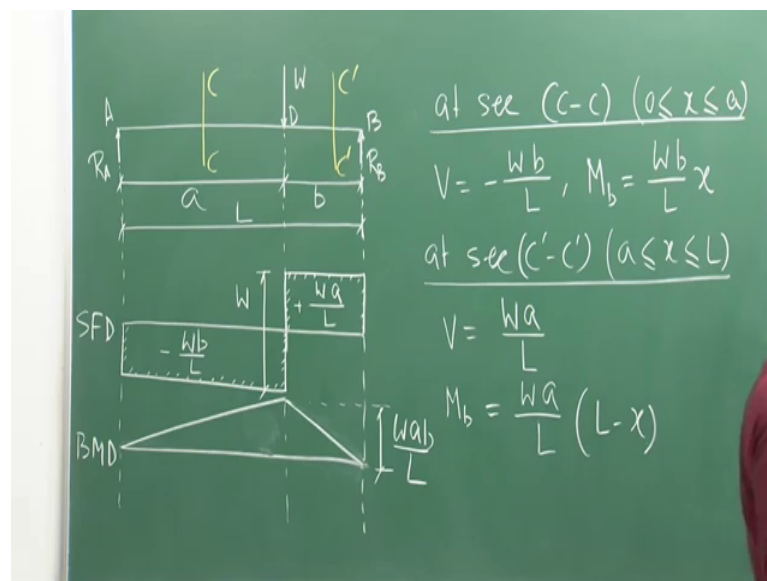 C W C'
A D B
R_A C C' R_B
a b
L
W + Wa/L
SFD
- Wb/L
BMD Wab/L
at sec (C-C) (0≤x≤a)
V = - Wb/L , M_b = Wb/L x
at sec (C'-C') (a≤x≤L)
V = Wa/L
M_b = Wa/L (L-x)